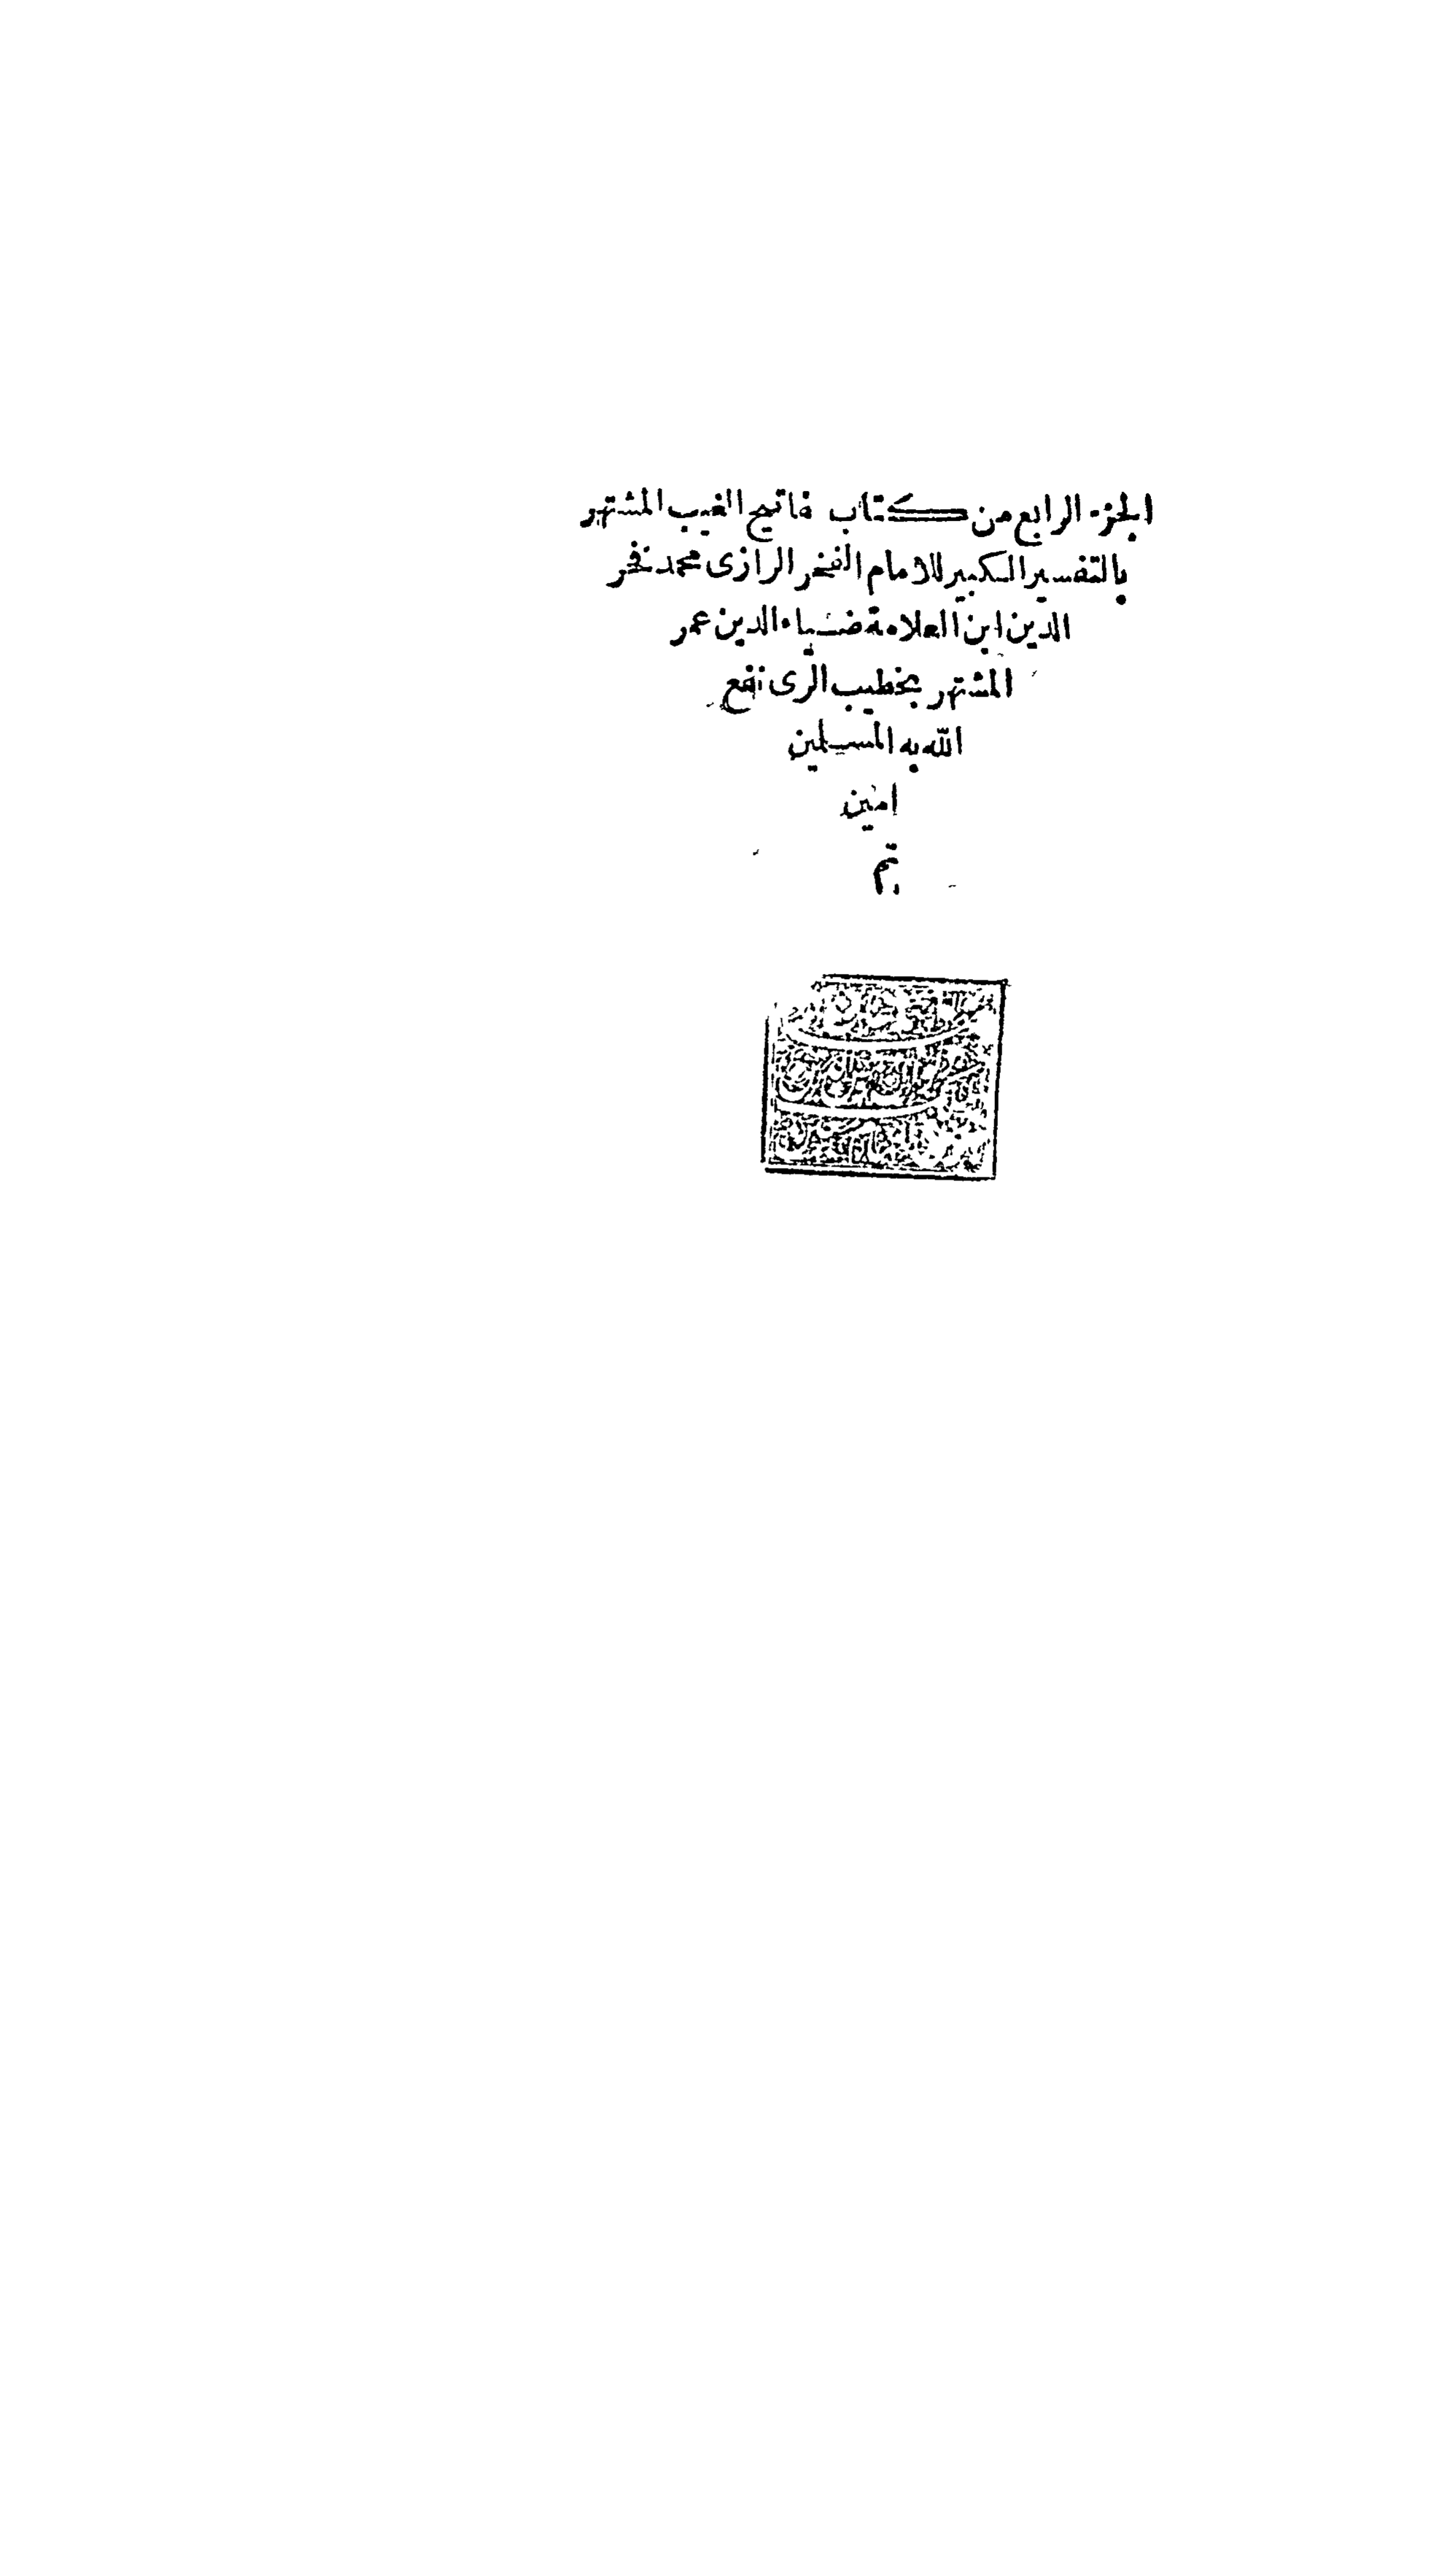 الجزء الرابع من كتاب فاتيح الغيب المشتهر
بالتفسير الكبير للامام الفخر الرازى محمد فخر
الدين ابن العلامة ضياء الدين عمر
المشتهر بخطيب الرى نفع
الله به المسلمين
امين
تم